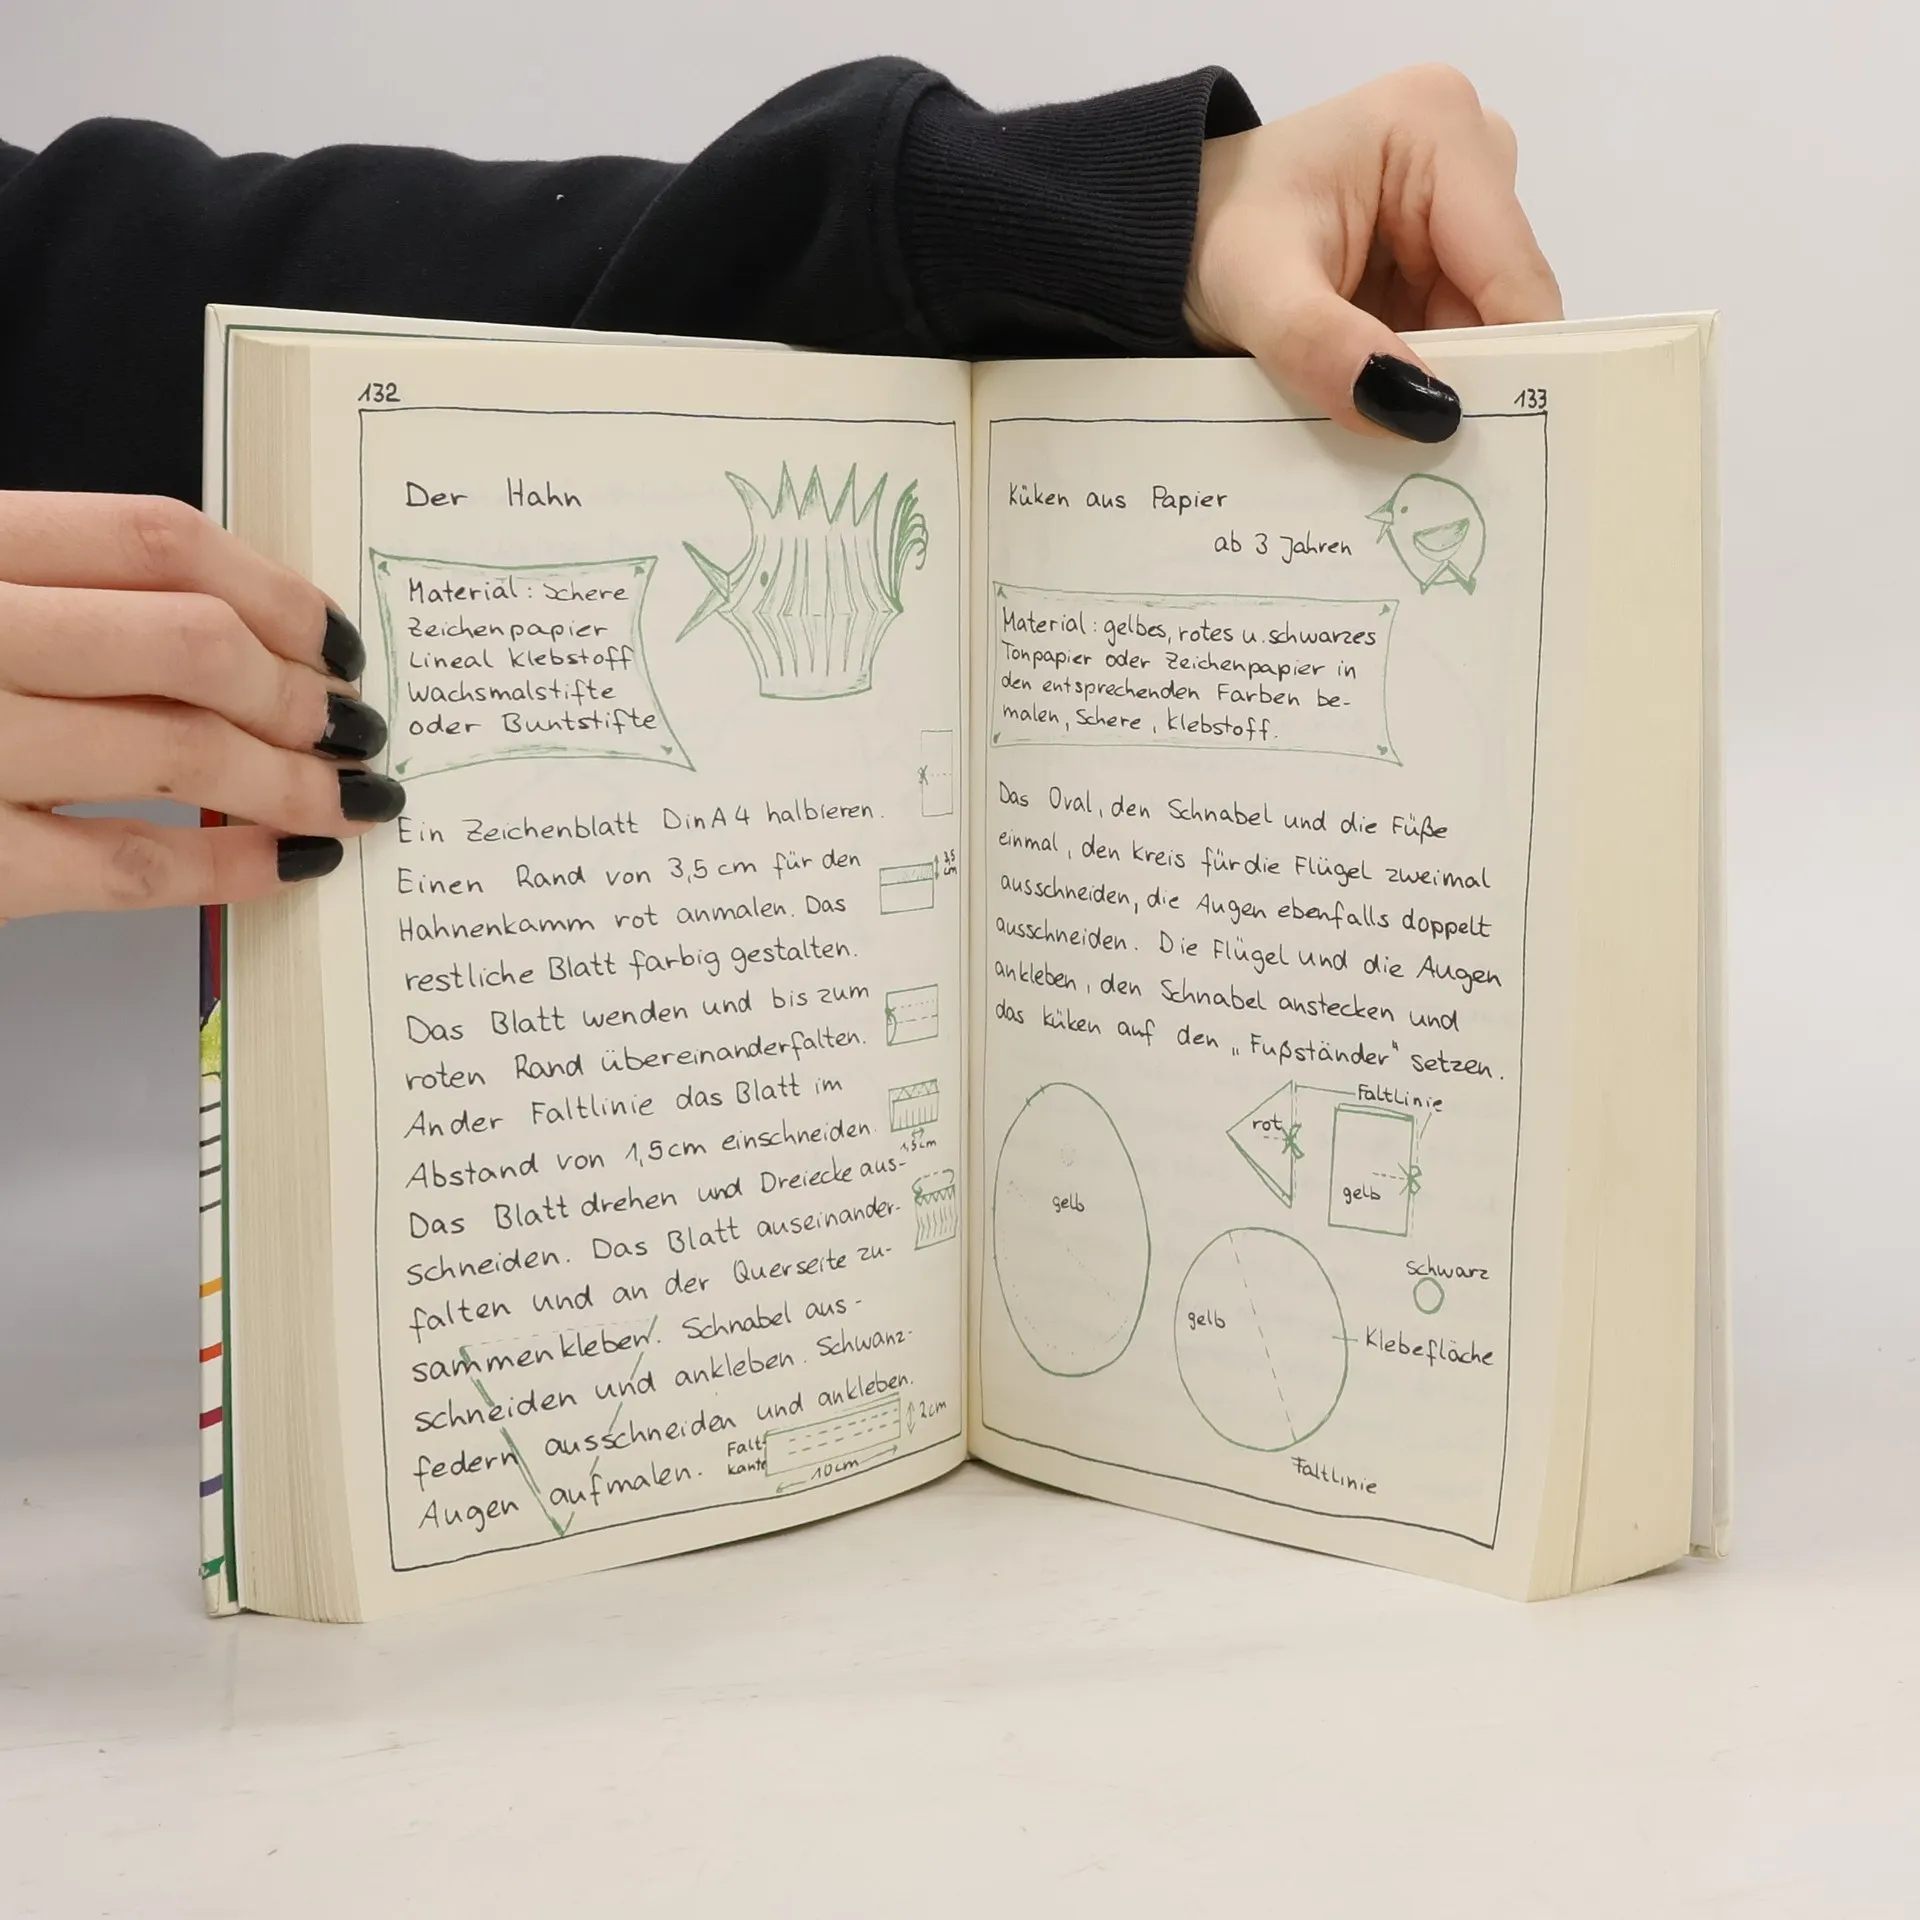 132
Der Hahn
Material: Schere
Zeichenpapier
Lineal Klebstoff
Wachsmalstifte
oder Buntstifte
Ein Zeichenblatt DinA4 halbieren.
Einen Rand von 3,5 cm für den
Hahnenkamm rot anmalen. Das
restliche Blatt farbig gestalten.
Das Blatt wenden und bis zum
roten Rand übereinanderfalten.
An der Faltlinie das Blatt im
Abstand von 1,5 cm einschneiden.
Das Blatt drehen und Dreiecke aus-
schneiden. Das Blatt auseinander-
falten und an der Querseite zu-
sammenkleben. Schnabel aus-
schneiden und ankleben. Schwanz-
federn ausschneiden und ankleben.
Augen aufmalen.
3,5
cm
1,5 cm
Falt-
kante
10 cm
2 cm
133
Küken aus Papier
ab 3 Jahren
Material: gelbes, rotes u. schwarzes
Tonpapier oder Zeichenpapier in
den entsprechenden Farben be-
malen, Schere, Klebstoff.
Das Oval, den Schnabel und die Füße
einmal, den Kreis für die Flügel zweimal
ausschneiden, die Augen ebenfalls doppelt
ausschneiden. Die Flügel und die Augen
ankleben, den Schnabel anstecken und
das Küken auf den „Fußständer" setzen.
Faltlinie
rot
gelb
gelb
schwarz
gelb
Klebefläche
Faltlinie